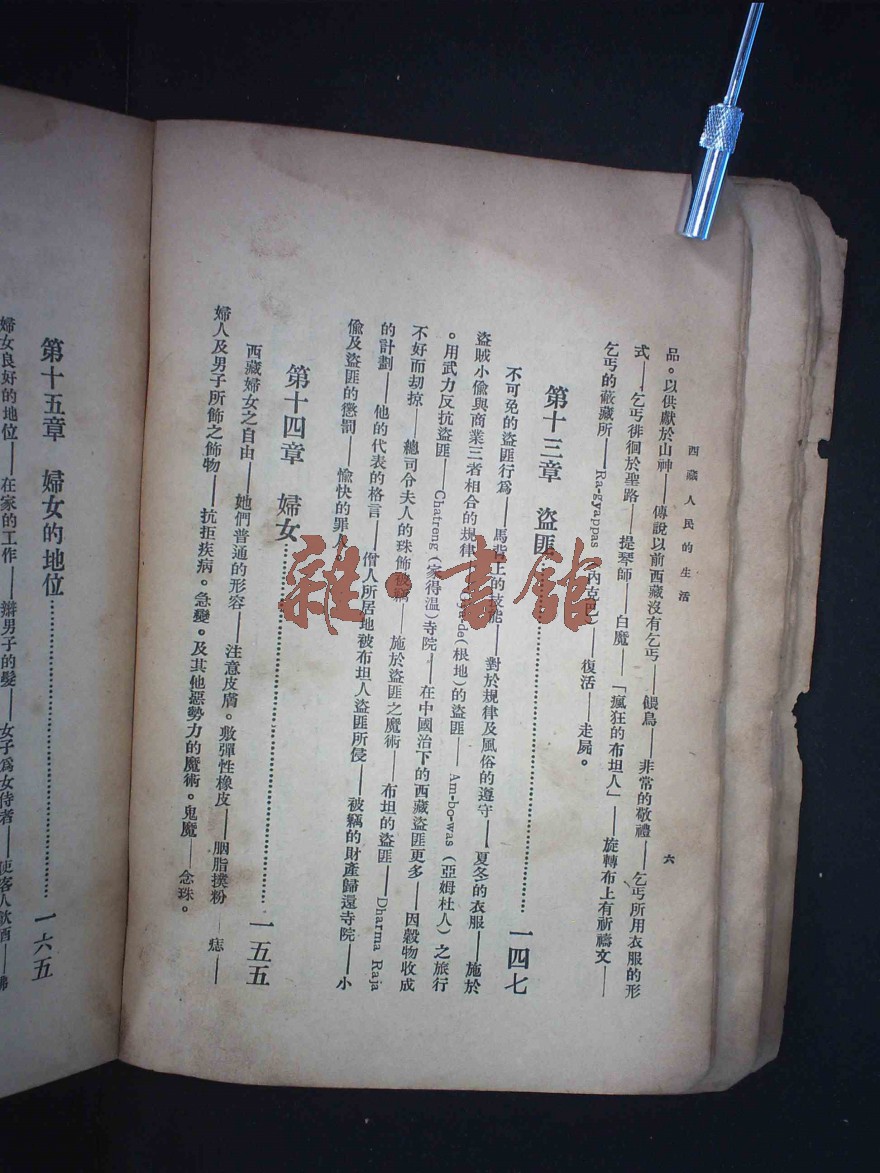 西藏人民的生活
六
品。以供獻於山神——傳說以前西藏沒有乞丐——餵鳥——非常的敬禮——乞丐所用衣服的形
式——乞丐徘徊於聖路——提琴師——白魔——「瘋狂的布坦人」——旋轉布上有祈禱文——
乞丐的蔽藏所——Ra-gyappas(內克巴)——復活——走屍。
第十三章 盜匪……一四七
不可免的盜匪行爲——馬背上的技能——對於規律及風俗的遵守——夏冬的衣服——施於
盜賊小偷與商業三者相合的規律(根地)的盜匪——Am-bo-was(亞姆杜人)之旅行
。用武力反抗盜匪——Chatreng(家得溫)寺院——在中國治下的西藏盜匪更多——因穀物收成
不好而刧掠——總司令夫人的珠飾被竊——施於盜匪之魔術——布坦的盜匪——Dharma Raja
的計劃——他的代表的格言——僧人所居地被布坦人盜匪所侵——被竊的財產歸還寺院——小
偷及盜匪的懲罰——愉快的罪人。
第十四章 婦女……一五五
西藏婦女之自由——她們普通的形容——注意皮膚。敷彈性橡皮——胭脂撲粉——痣——
婦人及男子所飾之飾物——抗拒疾病。急變。及其他惡勢力的魔術。鬼魔——念珠。
第十五章 婦女的地位……一六五
婦女良好的地位——在家的工作——辮男子的髮——女子爲女侍者——使客人飲酒——
雜·書館